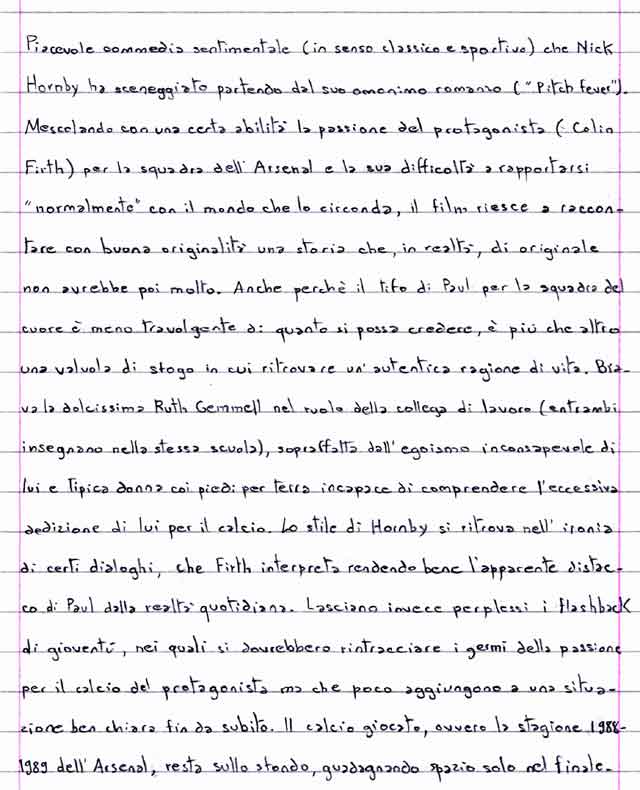 Piacevole commedia sentimentale (in senso classico e sportivo) che Nick
Hornby ha sceneggiato partendo dal suo omonimo romanzo ("Pitch fever").
Mescolando con una certa abilità la passione del protagonista (Colin
Firth) per la squadra dell'Arsenal e la sua difficoltà a rapportarsi
"normalmente" con il mondo che lo circonda, il film riesce a raccon-
tare con buona originalità una storia che, in realtà, di originale
non avrebbe poi molto. Anche perchè il tifo di Paul per la squadra del
cuore è meno travolgente di quanto si possa credere, è più che altro
una valvola di sfogo in cui ritrovare un'autentica ragione di vita. Bra-
va la dolcissima Ruth Gemmell nel ruolo della collega di lavoro (entrambi
insegnano nella stessa scuola), sopraffatta dall'egoismo inconsapevole di
lui e tipica donna coi piedi per terra incapace di comprendere l'eccessiva
dedizione di lui per il calcio. Lo stile di Hornby si ritrova nell'ironia
di certi dialoghi, che Firth interpreta rendendo bene l'apparente distac-
co di Paul dalla realtà quotidiana. Lasciano invece perplessi i flashback
di gioventù, nei quali si dovrebbero rintracciare i germi della passione
per il calcio del protagonista ma che poco aggiungono a una situa-
zione ben chiara fin da subito. Il calcio giocato, ovvero la stagione 1988-
1989 dell'Arsenal, resta sullo sfondo, guadagnando spazio solo nel finale.